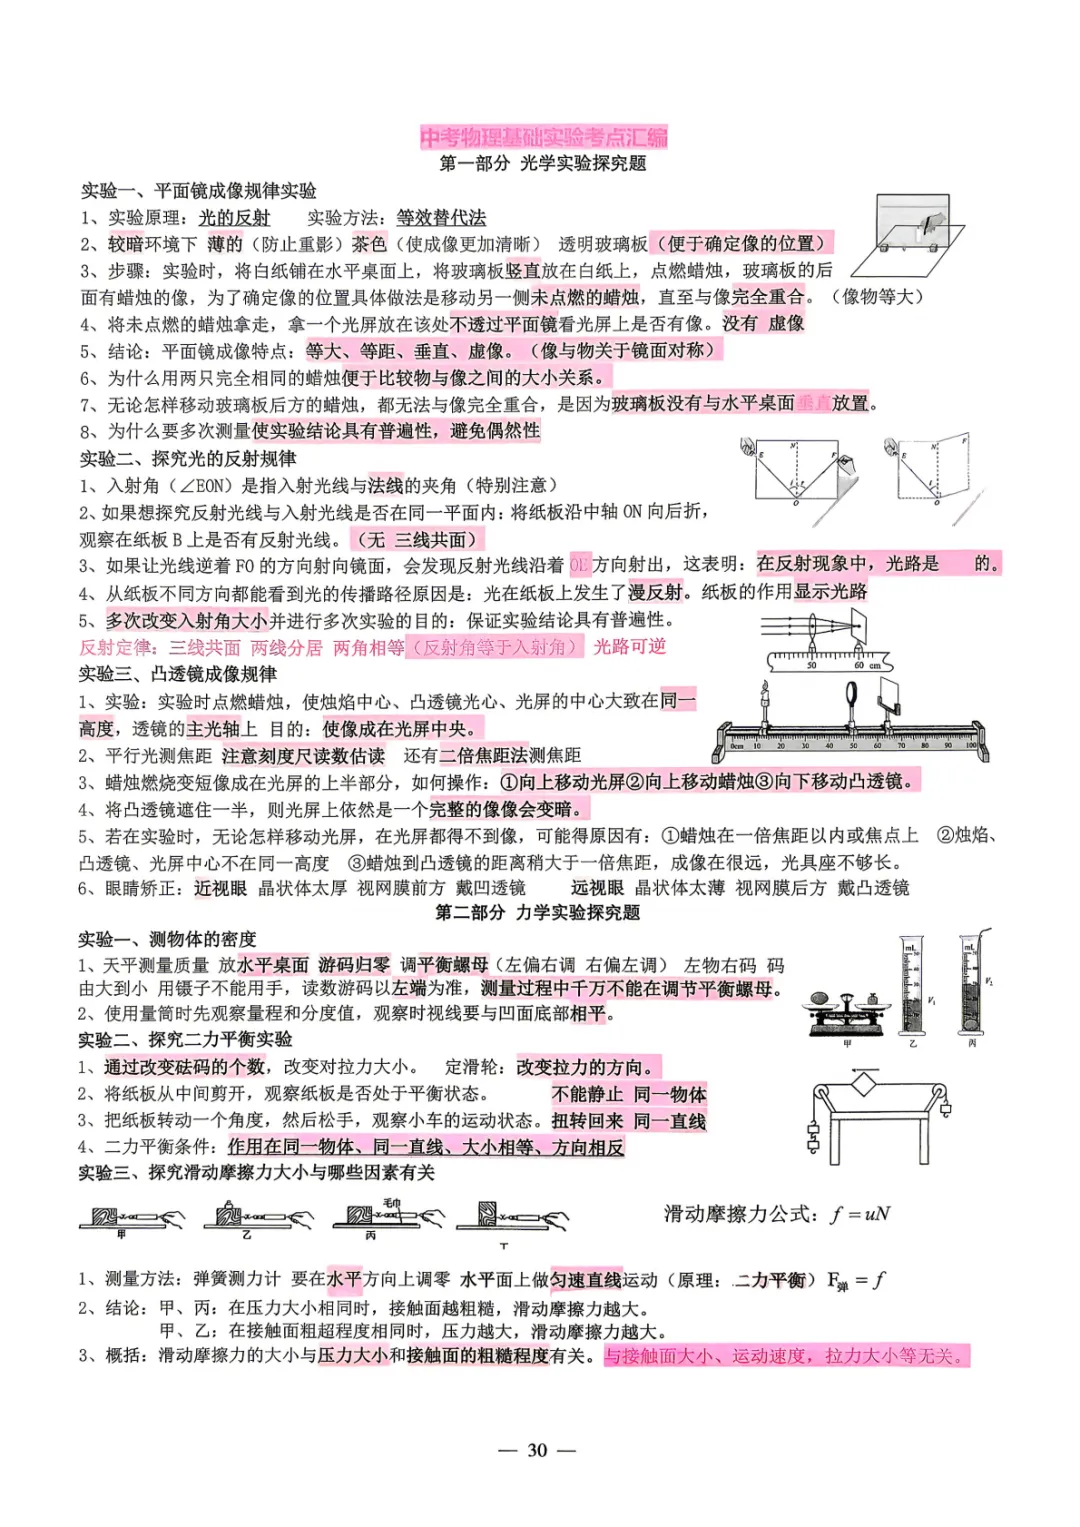 中考物理基础实验考点汇编
第一部分 光学实验探究题
实验一、平面镜成像规律实验
1、实验原理：光的反射 实验方法：等效替代法
2、较暗环境下 薄的（防止重影）茶色（使成像更加清晰） 透明玻璃板（便于确定像的位置）
3、步骤：实验时，将白纸铺在水平桌面上，将玻璃板竖直放在白纸上，点燃蜡烛，玻璃板的后
面有蜡烛的像，为了确定像的位置具体做法是移动另一侧未点燃的蜡烛，直至与像完全重合。（像物等大）
4、将未点燃的蜡烛拿走，拿一个光屏放在该处不透过平面镜看光屏上是否有像。没有 虚像
5、结论：平面镜成像特点：等大、等距、垂直、虚像。（像与物关于镜面对称）
6、为什么用两只完全相同的蜡烛便于比较物与像之间的大小关系。
7、无论怎样移动玻璃板后方的蜡烛，都无法与像完全重合，是因为玻璃板没有与水平桌面垂直放置。
8、为什么要多次测量使实验结论具有普遍性，避免偶然性
实验二、探究光的反射规律
1、入射角（∠EON）是指入射光线与法线的夹角（特别注意）
2、如果想探究反射光线与入射光线是否在同一平面内：将纸板沿中轴 ON 向后折，
观察在纸板 B 上是否有反射光线。（无 三线共面）
3、如果让光线逆着 FO 的方向射向镜面，会发现反射光线沿着 OE 方向射出，这表明：在反射现象中，光路是 的。
4、从纸板不同方向都能看到光的传播路径原因是：光在纸板上发生了漫反射。纸板的作用显示光路
5、多次改变入射角大小并进行多次实验的目的：保证实验结论具有普遍性。
反射定律：三线共面 两线分居 两角相等（反射角等于入射角） 光路可逆
E N F O
E N F O
50 60 cm
实验三、凸透镜成像规律
1、实验：实验时点燃蜡烛，使烛焰中心、凸透镜光心、光屏的中心大致在同一
高度，透镜的主光轴上 目的：使像成在光屏中央。
0cm 10 20 30 40 50 60 70 80 90 100
2、平行光测焦距 注意刻度尺读数估读 还有二倍焦距法测焦距
3、蜡烛燃烧变短像成在光屏的上半部分，如何操作：①向上移动光屏②向上移动蜡烛③向下移动凸透镜。
4、将凸透镜遮住一半，则光屏上依然是一个完整的像像会变暗。
5、若在实验时，无论怎样移动光屏，在光屏都得不到像，可能得原因有：①蜡烛在一倍焦距以内或焦点上 ②烛焰、
凸透镜、光屏中心不在同一高度 ③蜡烛到凸透镜的距离稍大于一倍焦距，成像在很远，光具座不够长。
6、眼睛矫正：近视眼 晶状体太厚 视网膜前方 戴凹透镜 远视眼 晶状体太薄 视网膜后方 戴凸透镜
第二部分 力学实验探究题
实验一、测物体的密度
1、天平测量质量 放水平桌面 游码归零 调平衡螺母（左偏右调 右偏左调） 左物右码 码
由大到小 用镊子不能用手，读数游码以左端为准，测量过程中千万不能在调节平衡螺母。
2、使用量筒时先观察量程和分度值，观察时视线要与凹面底部相平。
mL V₁ mL V₂
甲 乙 丙
实验二、探究二力平衡实验
1、通过改变砝码的个数，改变对拉力大小。 定滑轮：改变拉力的方向。
2、将纸板从中间剪开，观察纸板是否处于平衡状态。 不能静止 同一物体
3、把纸板转动一个角度，然后松手，观察小车的运动状态。扭转回来 同一直线
4、二力平衡条件：作用在同一物体、同一直线、大小相等、方向相反
实验三、探究滑动摩擦力大小与哪些因素有关
毛巾
甲 乙 丙 丁
滑动摩擦力公式：f = uN
1、测量方法：弹簧测力计 要在水平方向上调零 水平面上做匀速直线运动（原理：二力平衡）F弹 = f
2、结论：甲、丙：在压力大小相同时，接触面越粗糙，滑动摩擦力越大。
甲、乙：在接触面粗超程度相同时，压力越大，滑动摩擦力越大。
3、概括：滑动摩擦力的大小与压力大小和接触面的粗糙程度有关。与接触面大小、运动速度，拉力大小等无关。
— 30 —